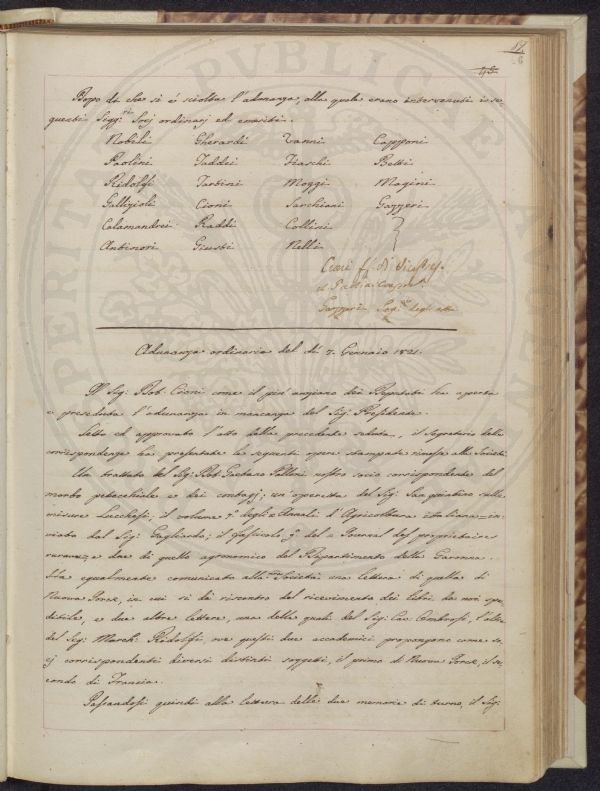 Dopo di che si è sciolta l'adunanza, alla quale erano intervenuti i se-
guenti Sigg.ri Socj ordinarj ed emeriti.
Nobili Gherardi Vanni Capponi
Paolini Taddei Fiacchi Betti
Ridolfi Tartini Moggi Magini
Gallizioli Cioni Sarchiani Gazzeri
Calamandrei Raddi Collini
Antinori Giusti Nelli
Cioni f.f. di
Gazzeri Seg.rio degli atti
Adunanza ordinaria del dì 7. Gennaio 1821.
Il Sig: Dot. Cioni come il più anziano dei Deputati ha aperta
e preseduta l'adunanza in mancanza del Sig: Presidente.
Letto ed approvato l'atto della precedente seduta, il Segretario delle
corrispondenze ha presentate le seguenti opere stampate rimesse alla Società
Un trattato del Sig: Dot. Gaetano Palloni nostro socio corrispondente del
morbo petecchiale e dei contagj; un'operetta del Sig: San quintino sulle
misure Lucchesi, il volume 7.º degli = Annali d'Agricoltura italiana = in-
viato dal Sig: Gagliardo; il fascicolo del = Journal des proprietaires
ruraux =, e due di quello agronomico del Dipartimento della Garonna.
Ha egualmente comunicato alla Società una lettera di quella di
Nuova Yorck, in cui si dà riscontro del ricevimento dei libri da noi spe-
ditile, e due altre lettere, una delle quali del Sig: Cav: Ombrosi, l'altra
del Sig: March: Ridolfi, ove questi due accademici propongono come so-
cj corrispondenti diversi distinti soggetti, il primo di Nuova Yorck, il se-
condo di Francia.
Passandosi quindi alla lettura delle due memorie di turno, il Sig: